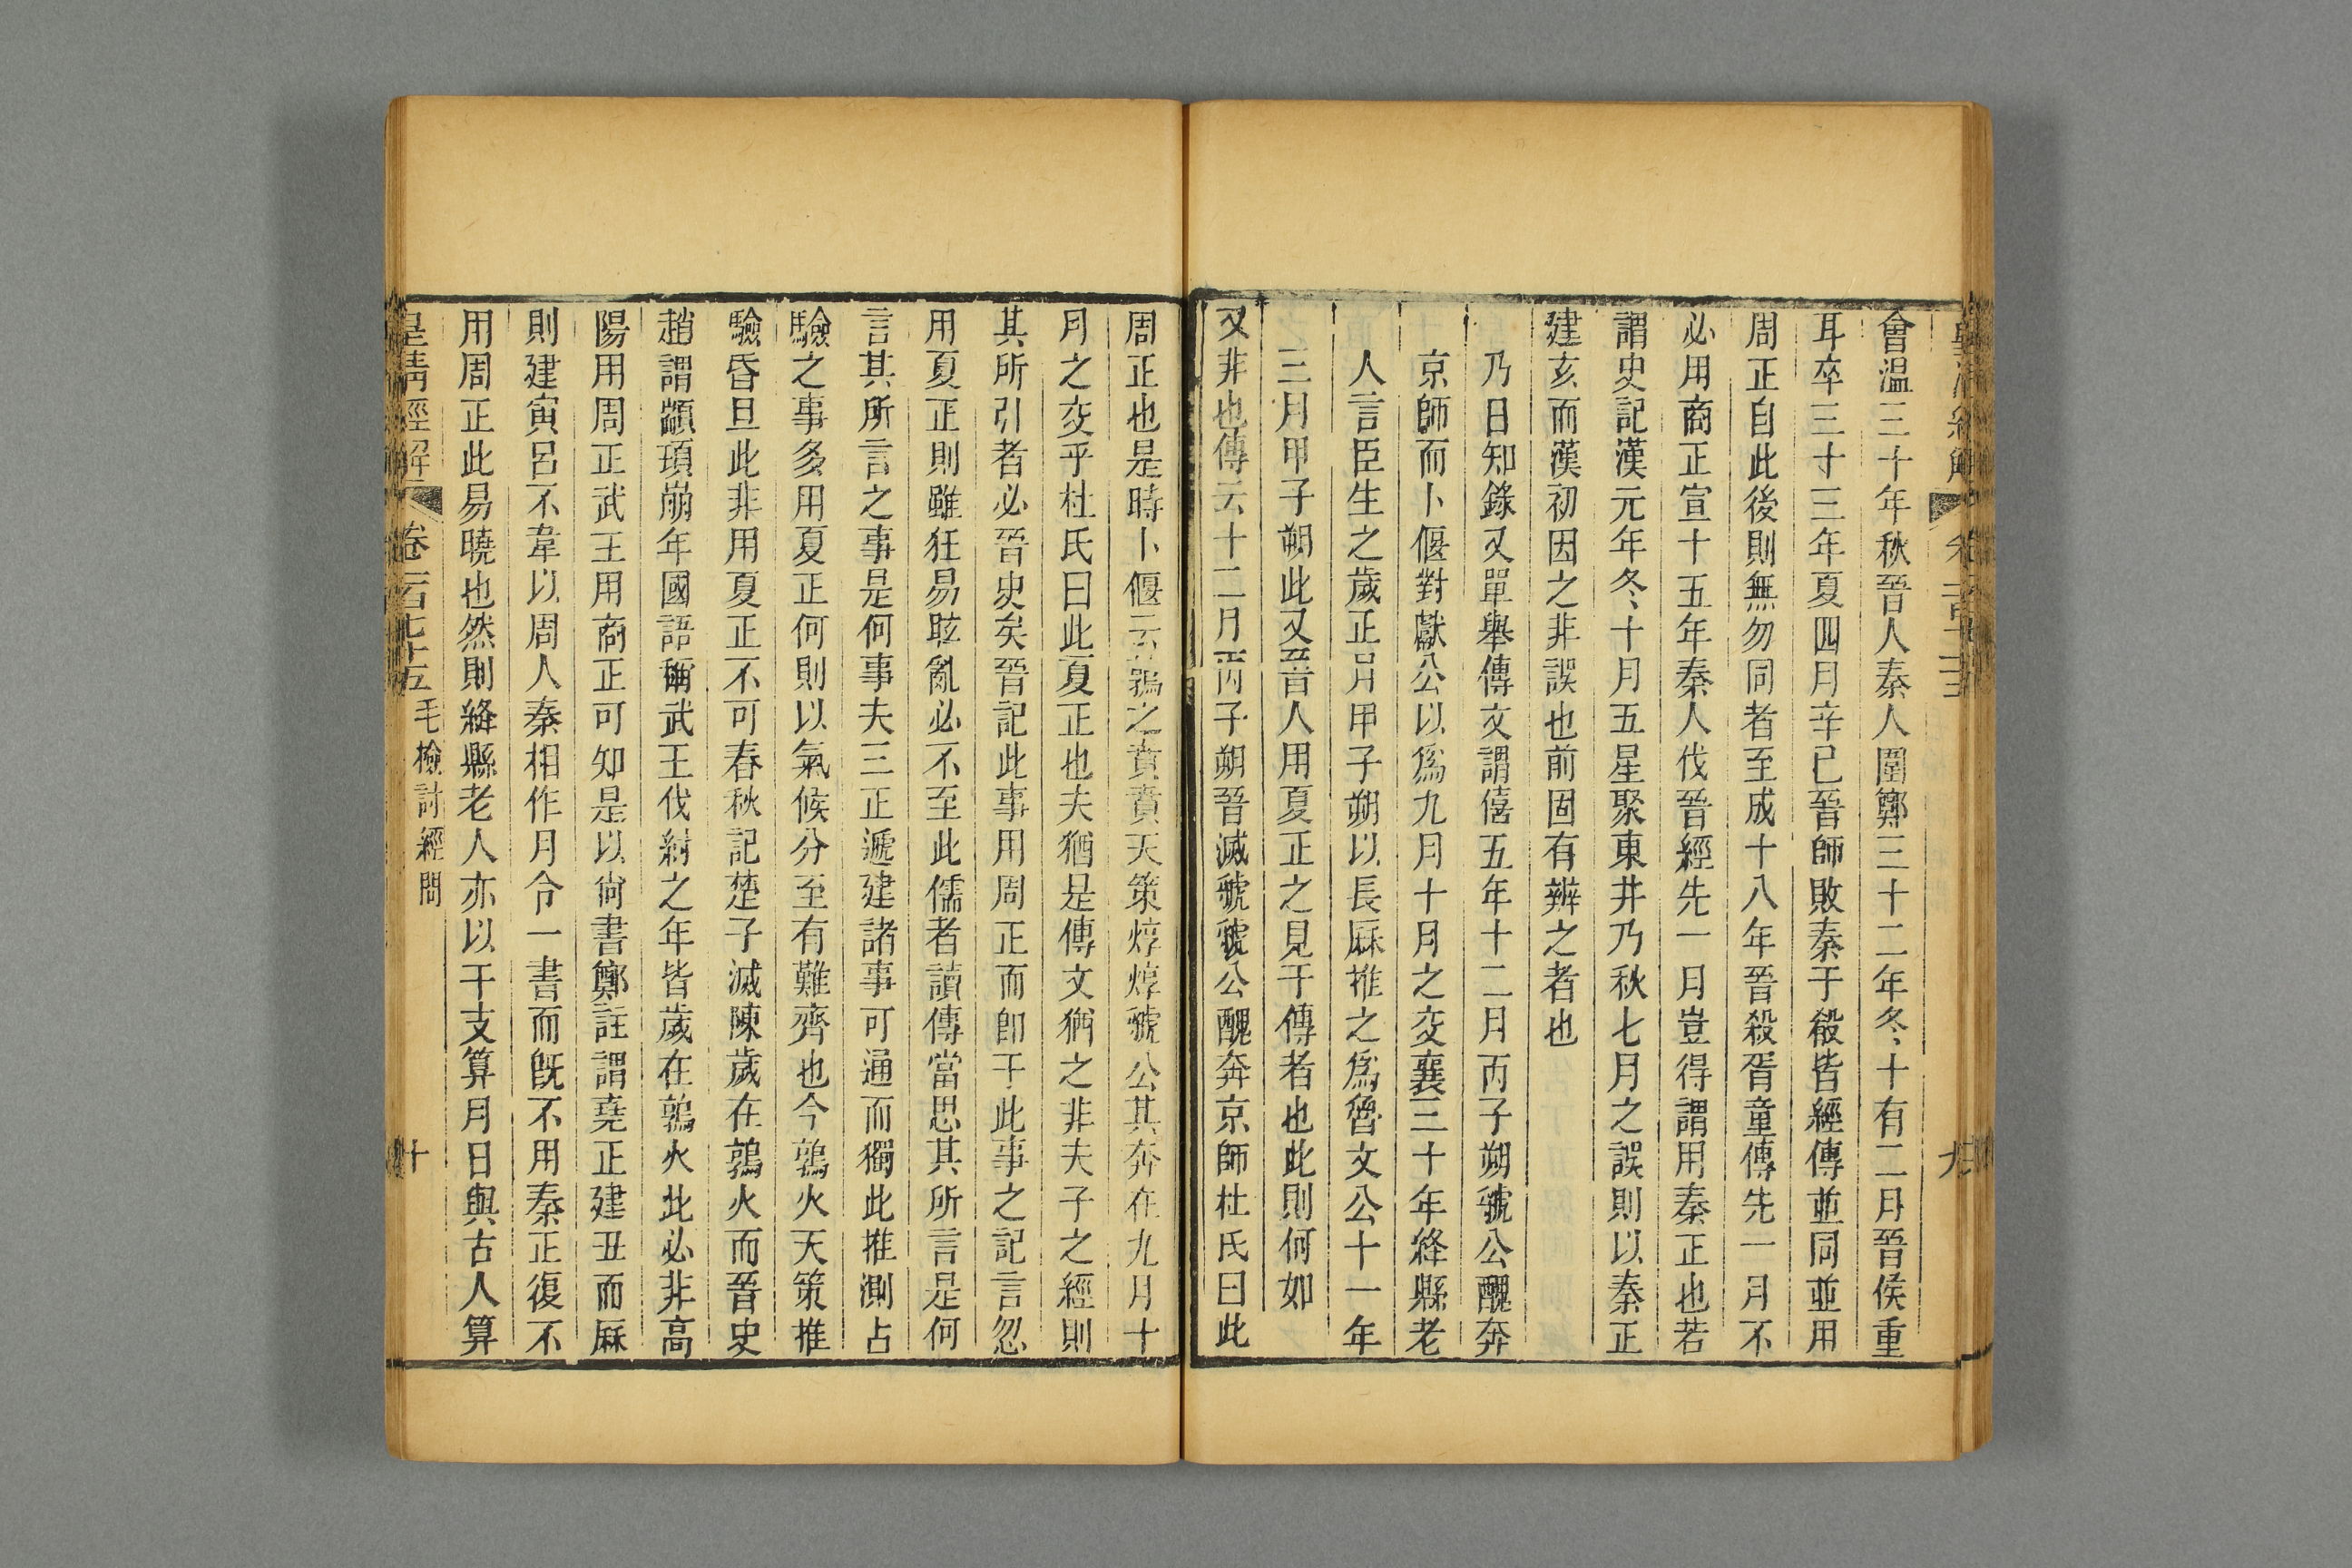 會溫三十年秋晉人秦人圍鄭三十二年冬十有二月晉侯重
耳卒三十三年夏四月辛巳晉師敗秦于殽皆經傳並同並用
周正自此後則無勿同者至成十八年晉殺胥童傳先一月不
必用商正宣十五年秦人伐晉經先一月豈得謂用秦正也若
謂史記漢元年冬十月五星聚東井乃秋七月之誤則以秦正
建亥而漢初因之非誤也前固有辨之者也
乃日知錄又單舉傳文謂僖五年十二月丙子朔虢公醜奔
京師而卜偃對獻公以爲九月十月之交襄三十年絳縣老
人言臣生之歲正月甲子朔以長厤推之爲魯文公十一年
三月甲子朔此又晉人用夏正之見于傳者也此則何如
又非也傳云十二月丙子朔晉滅虢虢公醜奔京師杜氏曰此
周正也是時卜偃云鶉之賁賁天策焞焞虢公其奔在九月十
月之交乎杜氏曰此夏正也夫猶是傳文猶之非夫子之經則
其所引者必晉史矣晉記此事用周正而卽于此事之記言忽
用夏正則雖狂易眩亂必不至此儒者讀傳當思其所言是何
言其所言之事是何事夫三正遞建諸事可通而獨此推測占
驗之事多用夏正何則以氣候分至有難齊也今鶉火天策推
驗昏旦此非用夏正不可春秋記楚子滅陳歲在鶉火而晉史
趙謂顓頊崩年國語稱武王伐紂之年皆歲在鶉火此必非高
陽用周正武王用商正可知是以尙書鄭註謂堯正建丑而厤
則建寅呂不韋以周人秦相作月令一書而旣不用秦正復不
用周正此易曉也然則絳縣老人亦以干支算月日與古人算
皇清經解
卷一百七十五 毛檢討經問
十